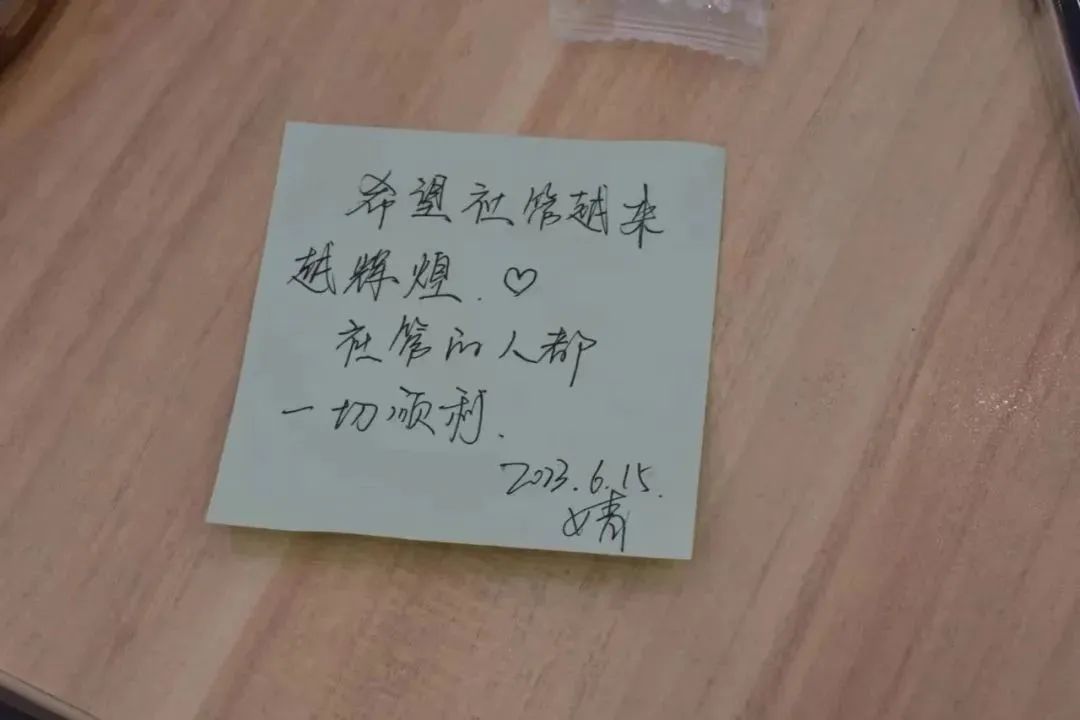 希望社管越来
越辉煌.♡
社管的人都
一切顺利.
2023.6.15.
婧